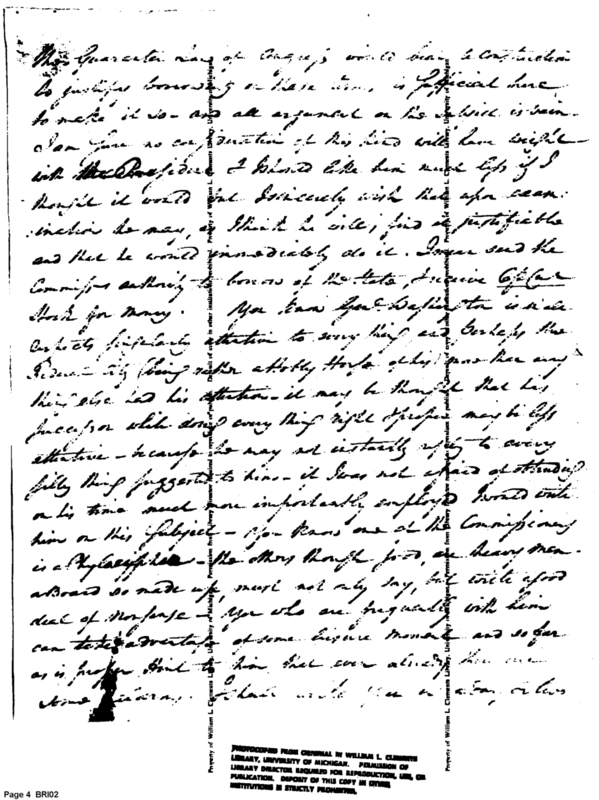 The Guarantee of Congress would bear a construction
to justify borrowing on these terms, is sufficient here
to make it so- and all argument on the subject is vain.
I am sure no consideration of this kind will have weight
with the President I should like him much less if I
thought it would but I sincerely wish that upon exam-
ination he may, as I think he will, find it justifiable
and that he would immediately do it. I mean send the
Commissrs authority to borrow of the State, & receive 6 p Cent
Stock for money. You know Genl Washington is in all
respects singularly attention to every thing and perhaps the
Federal City being rather a Hobby Horse of his more than any
thing else had his attention- it may be thought that his
successor while doing every thing right & proper may be less
attentive- because he may not instantly reply to every
silly thing suggested to him- if I was not afraid of intruding
on his time much more importantly employed I would write
him on this subject- You know one of the Commissioners
is a the others though good, are heavy men-
a Board so made up, must not only say, but write a good
deal of nonsense- You who are frequently with him
can take advantage of some leisure moment and so far
as is proper Hint to him that ever already there are
some write you in a day or two
Property of William L. Clements Library, University of Michigan
PHOTOCOPIED FROM ORIGINAL IN WILLIAM L. CLEMENTS
LIBRARY, UNIVERSITY OF MICHIGAN. PERMISSION OF
LIBRARY DIRECTOR REQUIRED FOR REPRODUCTION, USE, OR
PUBLICATION. DEPOSIT OF THIS COPY IN OTHER
INSTITUTIONS IS STRICTLY PROHIBITED.
Page 4 BRI02